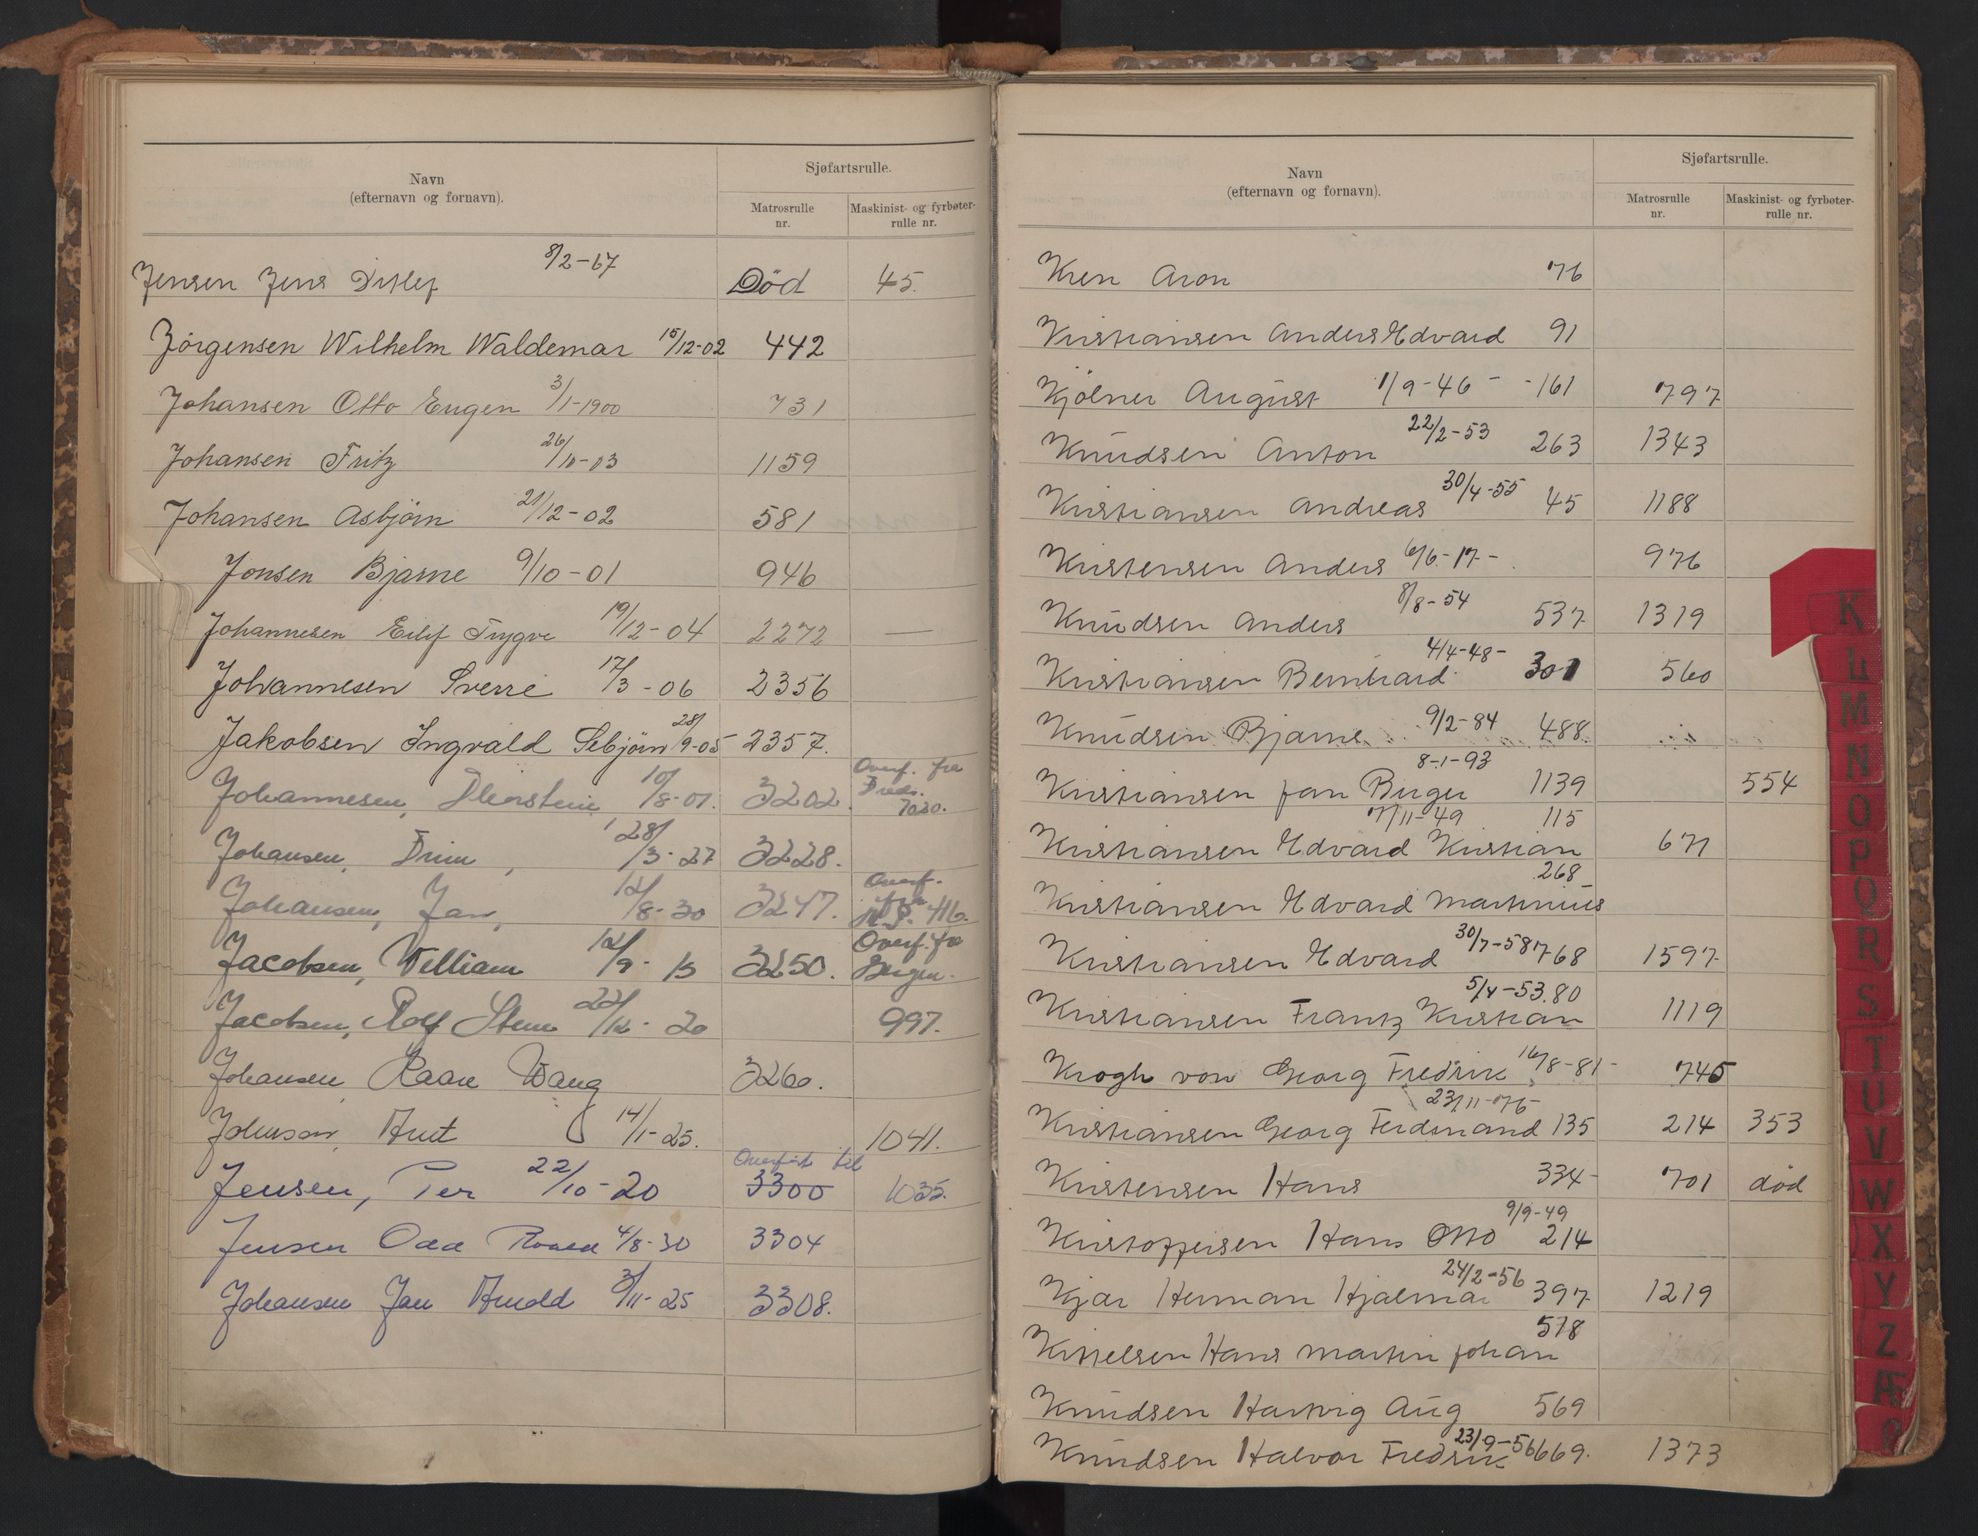 Navn
(efternavn og fornavn).
Sjøfartsrulle.
Matrosrulle nr.
Maskinist- og fyrbøter-rulle nr.
Jensen Jens Ditlef 8/2-67 Død 45.
Jörgensen Wilhelm Waldemar 15/12-02 442
Johansen Otto Eugen 3/1-1900 731
Johansen Fritz 26/10-03 1159
Johansen Asbjörn 21/12-02 581
Jonsen Bjarne 9/10-01 946
Johannesen Eilif Trygve 19/12-04 2272 —
Johannesen Sverre 17/3-06 2356
Jakobsen Ingvald Sebjörn 28/9-05 2357.
Johannesen, Thorstein 10/8-07. 3202. Overf. fra Freds. 7030.
Johansen, 28/3-27 3228.
Johansen, Jan, 12/8-30 3247. Overf. fra 416.
Jacobsen, William 12/9-13 3250. Overf. fra Bergen.
Jacobsen, Rolf Stene 22/12-20 997.
Johansen, Kaare Wang 3260.
14/1-25. 1041.
Jensen, Per 22/10-20 Overført til 3300 1035.
Jensen Odd Roald 4/8-30 3304
Johansen Jan Arnold 3/11-25 3308.
Navn
(efternavn og fornavn).
Sjøfartsrulle.
Matrosrulle nr.
Maskinist- og fyrbøter-rulle nr.
Kren Aron 76
Kristiansen Anders Edvard 91
Kjölner August 1/9-46 - -161 797
Knudsen Anton 22/2-53 263 1343
Kristiansen Andreas 30/4-55 45 1188
Kristensen Anders 6/6-17- 976
Knudsen Anders 8/8-54 537 1319
Kristiansen Bernhard 4/4-48- 301 560
Knudsen Bjarne 9/2-84 488
Kristiansen Jan Birger 8-1-93 1139 554
Kristiansen Edvard Kristian 7/11-49 115 671
Kristiansen Edvard Martinius 268
Kristiansen Edvard 30/7-58 768 1597
Kristiansen Frantz Kristian 5/4-53 80 1119
Krogh von Georg Fredrik 16/8-81- 745
Kristiansen Georg Ferdinand 23/11-76- 135 214 353
Kristensen Hans 334- 701 død
Kristoffersen Hans Otto 9/9-49 214
Kjær Herman Hjalmar 24/2-56 397 1219
Kittelsen Hans Martin Johan 518
Knudsen Hartvig Aug 569
Knudsen Halvor Fredrik 23/9-56 669. 1373
K
L
M
N
O
P
Q
R
S
T
U
V
W
X
Y
Z
Æ